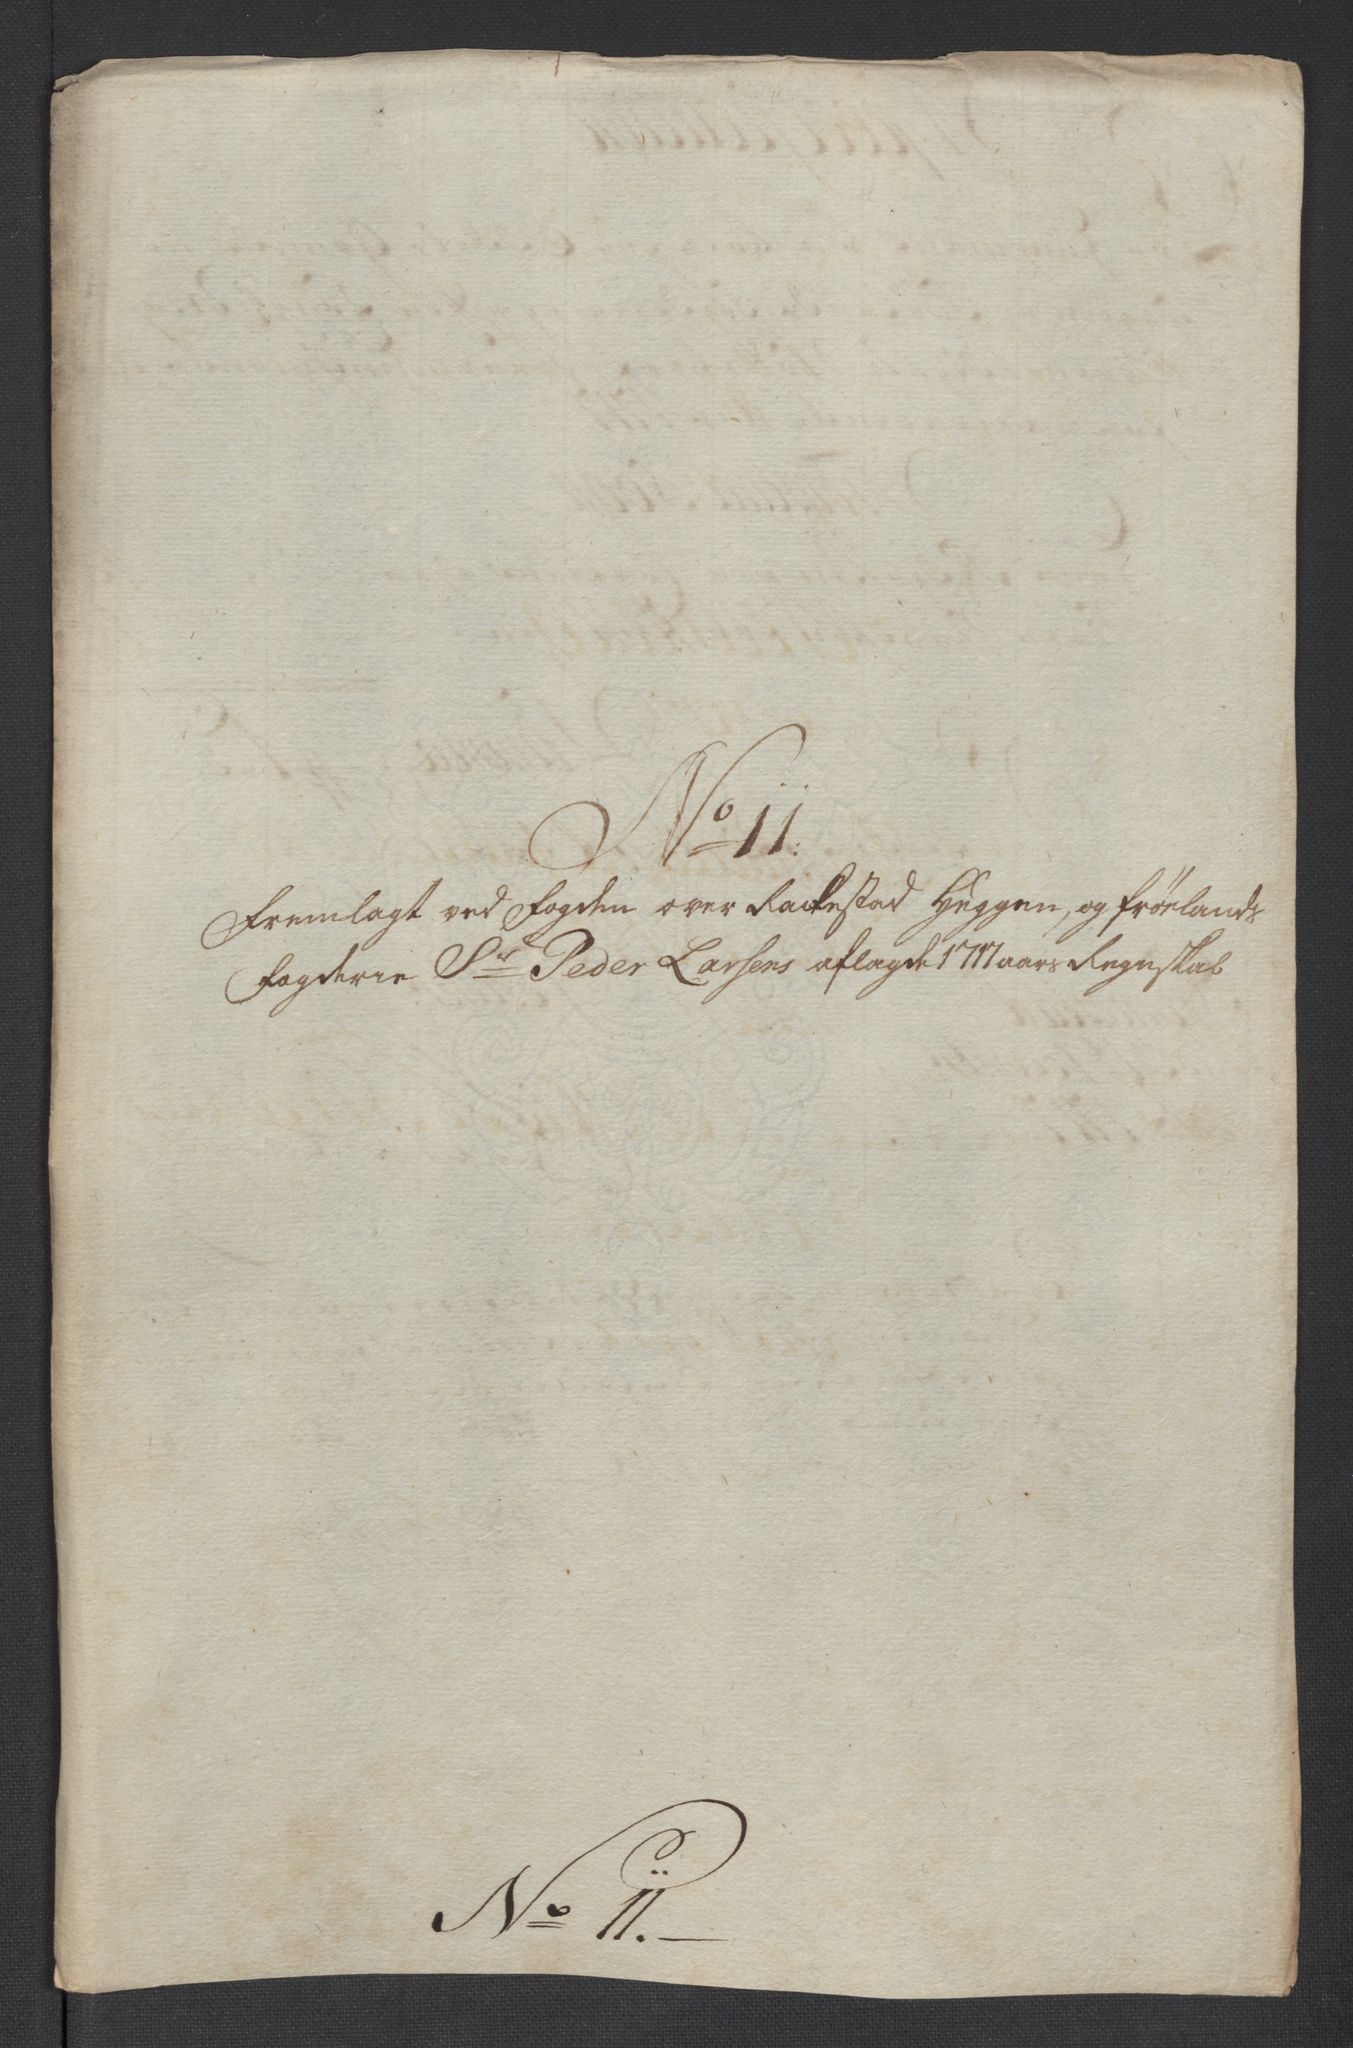 No 11:
Fremlagt ved Fogden over Rackestad Heggen, og Frölands
Fogderie Sr Peder Larsens aflagde 1717 aars Regnskab
No 11.